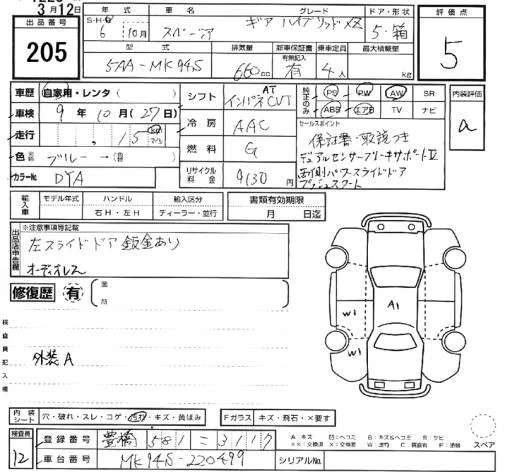 3月12日
出品番号
205
年式
S・H・R
6 10月
車名
スペーシア
グレード
ギア ハイブリッドXZ
ドア・形状
5・箱
評価点
5
型式
5AA-MK94S
排気量
660cc
新車保証書
有無記入
有
乗車定員
4人
最大積載量
kg
車歴 自家用・レンタ( )
車検 9年10月(27日)
走行 15
色 ブルー → (
カラーNo DYA
シフト AT インパネCVT
冷房 AAC
燃料 G
リサイクル料金 9130円
PS PW AW SR
ABS エアB TV ナビ
セールスポイント
保証書・取説つき
デュアルセンサーブレーキサポートⅡ
両側パワースライドドア
プッシュスタート
内装評価
a
輸入車
モデル年式
ハンドル
右H・左H
輸入区分
ディーラー・並行
書類有効期限
月 日迄
※注意事項等記載
左スライドドア鈑金あり
オーディオレス
修復歴 有
箇所
検査員記入欄
外装A
A1
W1
W1
内装シート 穴・破れ・スレ・コゲ・・キズ・黄ばみ
Fガラス キズ・飛石・×要す
スペア
検査員
12
登録番号 豊橋 581 - 3117
車台番号 MK94S-220499
シリアルNo.